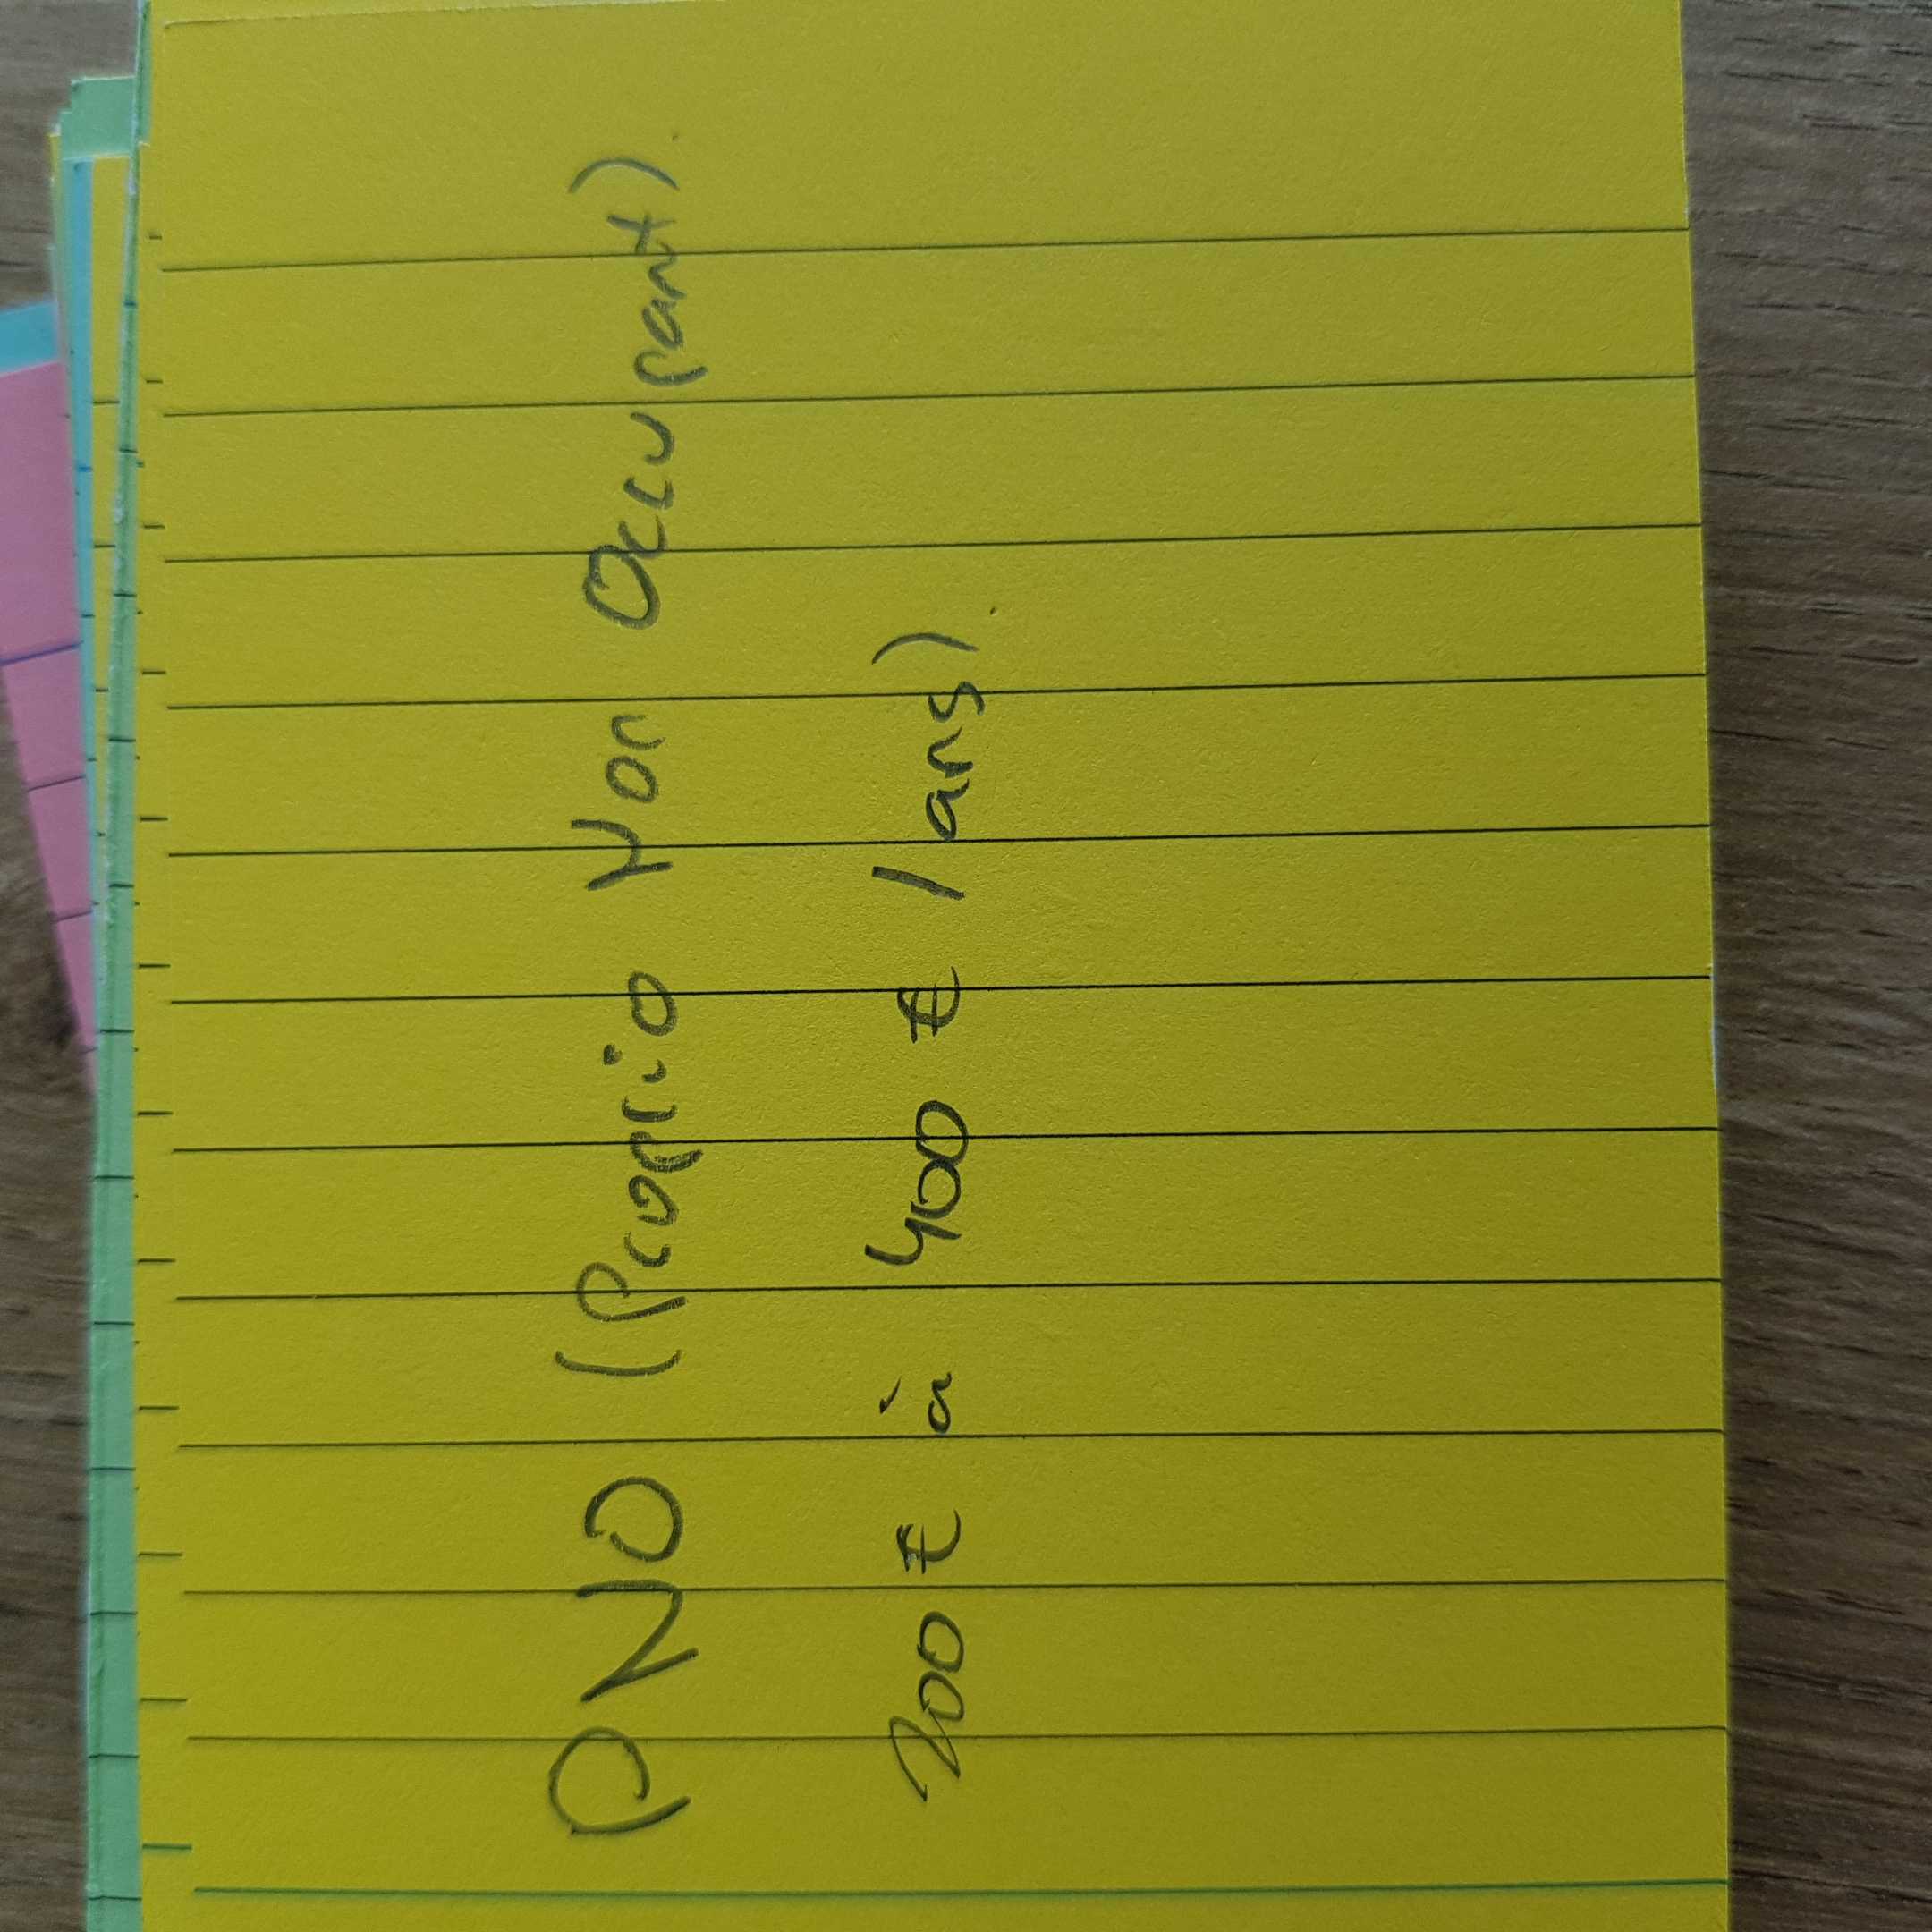 PNO (Proprio Non Occupant).
200 € à 400 € / ans).